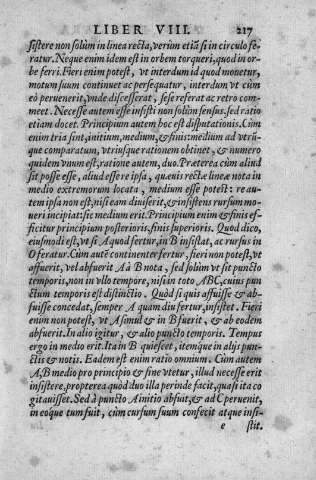 LIBER VIII. 217
sistere non solùm in linea recta, verùm etiã si in circulo fe-
ratur. Neque enim idem est in orbem torqueri, quod in or-
be ferri. Fieri enim potest, vt interdum id quod monetur,
motum suum continuet ac persequatur, interdum vt cùm
eò peruenerit, vnde discesserat, sese referat ac retro com-
meet. Necesse autem esse insisti non solùm sensus, sed ratio
etiam docet. Principium autem hoc est disputationis. Cùm
enim tria sint, initium, medium, & finis: medium ad vtrũ-
que comparatum, vtriusque rationem obtinet, & numero
quidem vnum est, ratione autem, duo. Præterea cùm aliud
sit posse esse, aliud essere ipsa, quæuis rectæ lineæ nota in
medio extremorum locata, medium esse potest: re au-
tem ipsa non est, nisi eam diuiserit, & insistens rursum mo-
ueri incipiat: sic medium erit. Principium enim & finis ef-
ficitur principium posterioris, finis superioris. Quod dico,
eiusmodi est, vt si A quod fertur, in B insistat, ac rursus in
O feratur. Cùm autẽ continenter fertur, fieri non potest, vt
affuerit, vel abfuerit A à B nota, sed solùm vt sit puncto
temporis, non in vllo tempore, nisi in toto ABC, cuius pun-
ctum temporis est distinctio. Quòd si quis affuisse & ab-
fuisse concedat, semper A quam diu fertur, insistet. Fieri
enim non potest, vt A simul & in B fuerit, & ab eodem
abfuerit. In alio igitur, & alio puncto temporis. Tempus
ergo in medio erit. Ita in B quiescet, itemque in alijs pun-
ctis & notis. Eadem est enim ratio omnium. Cùm autem
A, B medio pro principio & fine vtetur, illud necesse erit
insistere, propterea quòd duo illa perinde facit, quasi ita co
gitauisset. Sed à puncto A initio abfuit, & ad C peruenit,
in eoque tum fuit, cùm cursum suum confecit atque insi-
e stit.